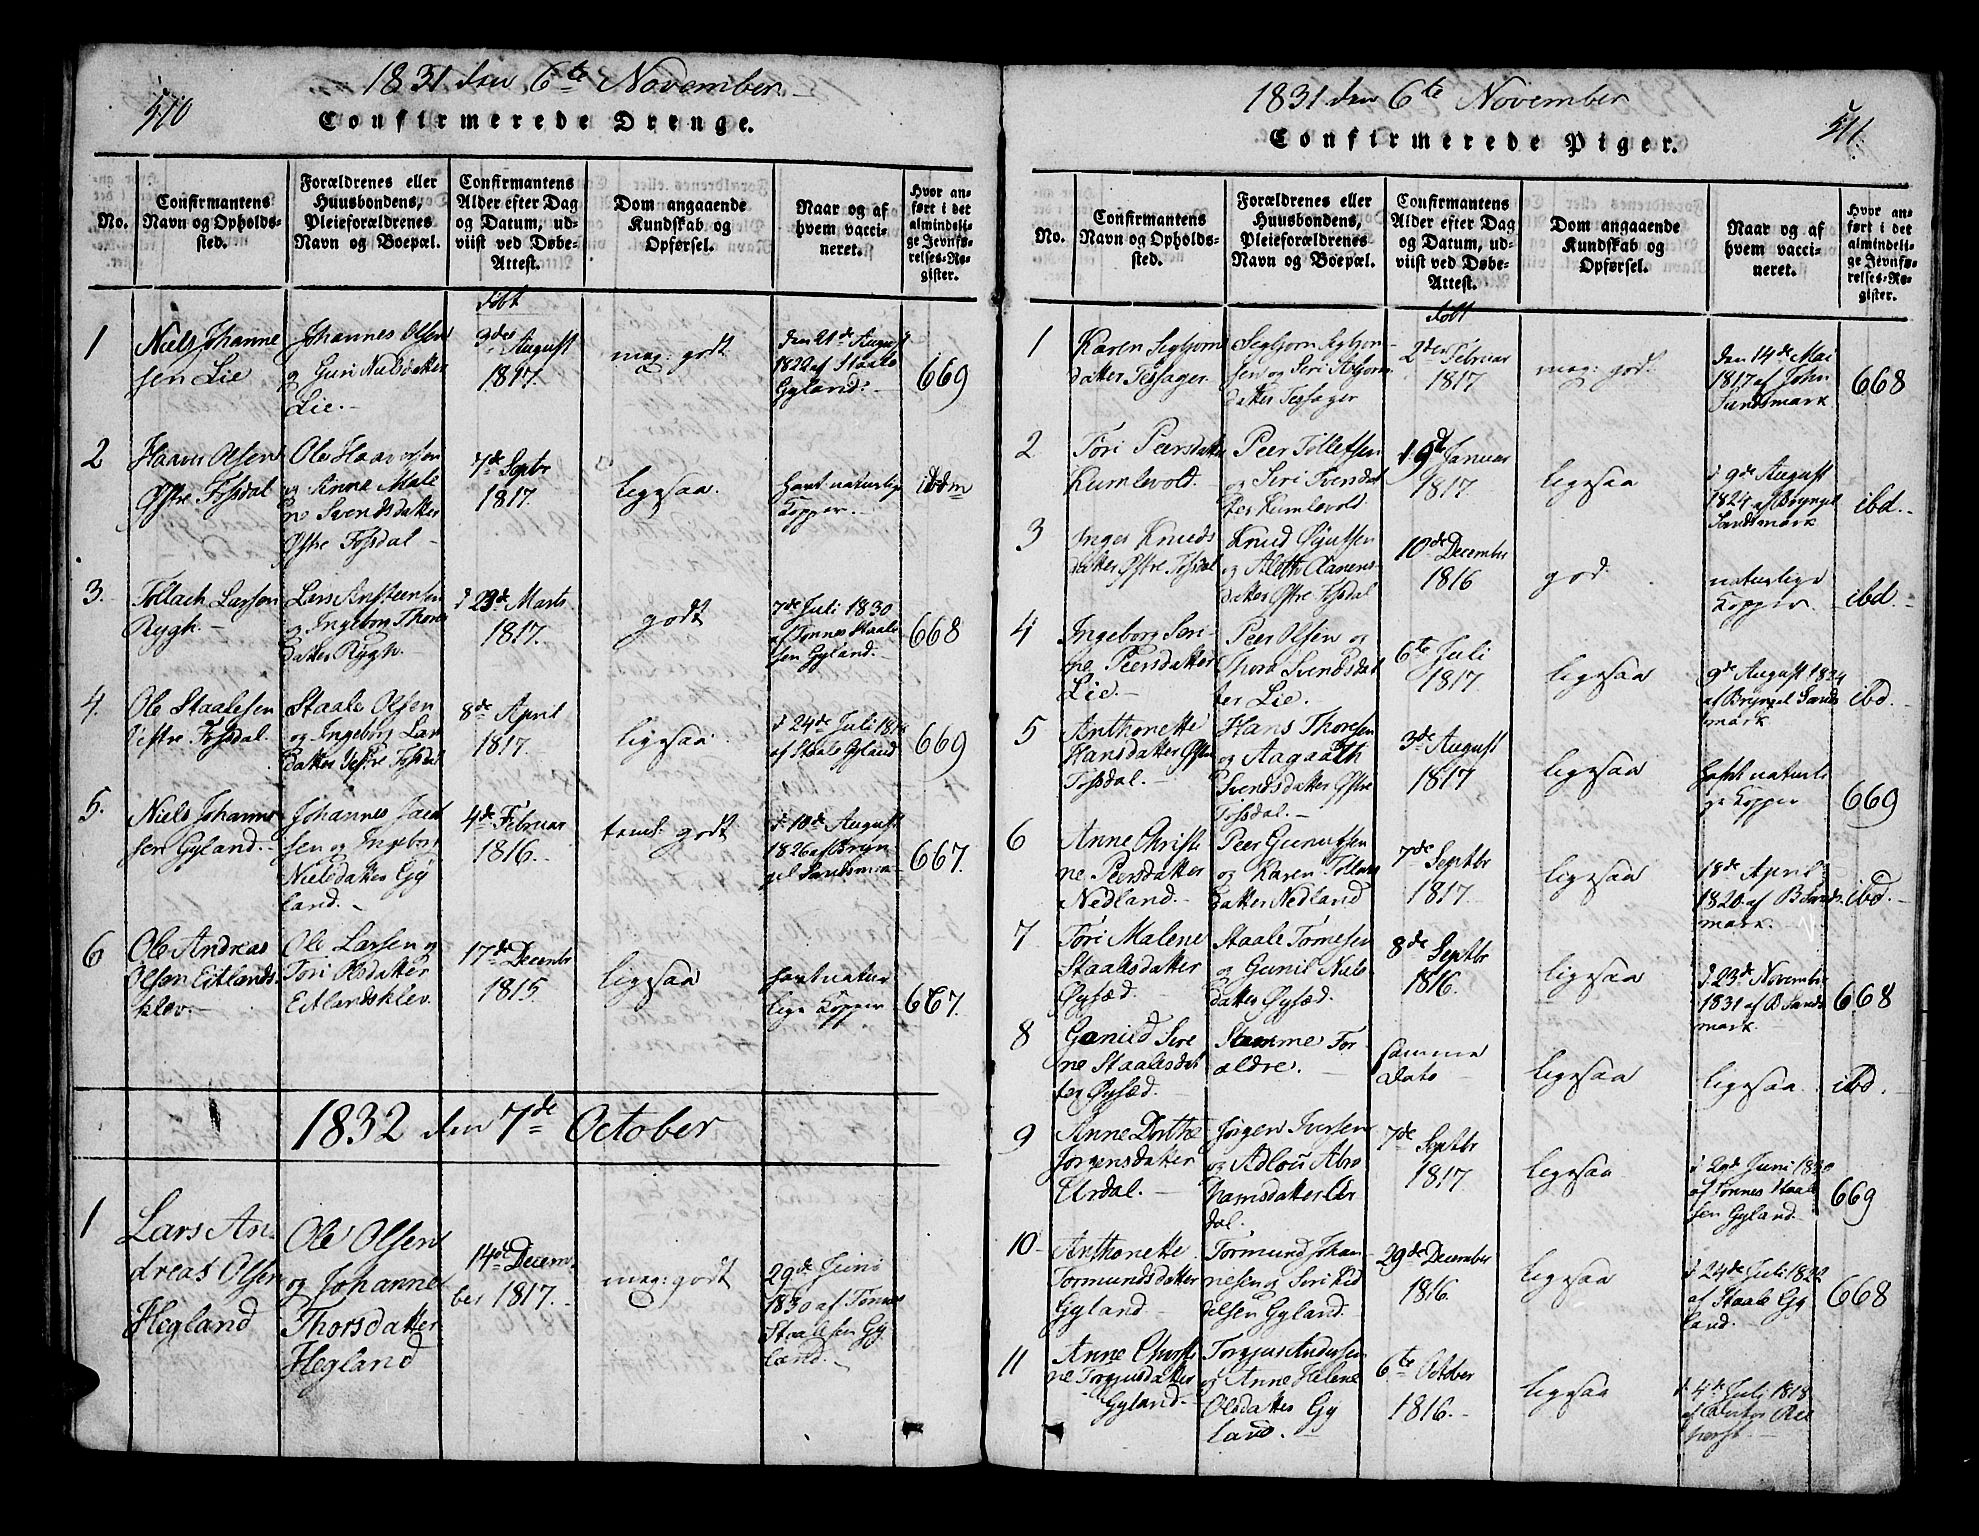 1831 den 6te November.
510
Confirmerede Drenge.
No.
Confirmantens
Navn og Opholds-
sted.
Forældrenes eller
Huusbondens,
Pleieforældrenes
Navn og Boepæl.
Confirmantens
Alder efter Dag
og Datum, ud-
viist ved Døbe-
Attest.
Dom angaaende
Kundskab og
Opførsel.
Naar og af
hvem vacci-
neret.
Hvor an-
ført i det
almindeli-
ge Jevnfø-
relses-Re-
gister.
født
1
Niels Johanne
sen Lie
Johannes Olsen
og Guri Nielsdatter
Lie.-
9de August
1817.
mag: godt
den 21de August
1822 af Staale
Gyland.
669
2
Haaver Olsen
Østre Fossdal
Ole Haaversen
og Anne Male
ne Svendsdatter
Østre Fossdal-
7de Septbr
1817.
ligesaa.
havt naturlige
Kopper.
ibdm
3.
Tollach Larsen
Rygh.-
Lars Ansteensen
og Ingeborg Thores
datter Rygh.
d 23de Marts
1817.
godt
7de Juli 1830
af Tønnes Staale
sen Gyland.-
668
4.
Ole Staalesen
Vestre Fossdal.
Staale Olsen
og Ingeborg Lars
datter Vestre Fossdal
8de April
1817.
ligesaa.
d 24de Juli
af Staale Gyland
669
5.
Niels Johannes
sen Gyland.-
Johannes Jacob
sen og Ingebor
Nielsdatter Gy
land.-
4de Februar
1816.-
teml. godt
d 10de August
1826 af Bryn
gel Sandsmar
667.
6
Ole Andreas
Olsen Eitlands-
klev.-
Ole Larsen og
Tori Olsdatter
Eitlandsklev.
17de Decembr
1815.
ligesaa
havt natur
lige Kopper
667.
1832 den 7de October
1
Lars An-
dreas Olsen
Hegland
Ole Olsen
og Johanne
Thorsdatter
Hegland
14de Decem-
ber 1817.-
mag: godt
29de Juni
1830 af Tønnes
Staalesen Gy
land.-
1831 den 6te November
511.
Confirmerede Piger.
No.
Confirmantens
Navn og Opholds-
sted.
Forældrenes eller
Huusbondens,
Pleieforældrenes
Navn og Boepæl.
Confirmantens
Alder efter Dag
og Datum, ud-
viist ved Døbe-
Attest.
Dom angaaende
Kundskab og
Opførsel.
Naar og af
hvem vacci-
neret.
Hvor an-
ført i det
almindeli-
ge Jevnfø-
relses-Re-
gister.
født
1
Karen Segbjørns
datter
Segbjørn Segbjørn-
sen og Seri Asbjørns
datter
2den Februar
1817
mag: godt
den 14de Mai
1817 af John
Sandsmark
668
2
Tori Peersdatter
Kumlevold.-
Peer Tollefsen
og Siri Svensdat
ter Kumlevold
19de Januar
1817
ligesaa
d 9de August
1824 af Bryngel
Sandsmark
ibd.-
3
Inger Knuds
datter Østre Fossdal
Knud
og Aleth Aanens-
datter Østre Fossdal
10de Decembr
1816
god.
naturlige
Kopper.-
ibd.-
4
Ingeborg Seri-
ne Peersdatter
Lie.-
Peer Olsen og
Thora Svendsdat
ter Lie.
6te Juli
1817.
ligesaa
9de August 1824
af Bryngel Sands
mark
ibd.-
5
Anthonette
Hansdatter Østre
Fossdal.-
Hans Thorsen
og Aagaath
Svendsdatter Østre
Fossdal.-
3de August
1817
ligesaa
havt naturli
ge Kopper
669
6
Anne Christi
ne Peersdatter
Nedland.-
Peer Gunufsen
og Karen Tollevs
datter Nedland
7de Septbr
1817.
ligesaa
18de April
1820 af B Sands
mark.
ibd.-
7
Tori Malene
Staalesdatter
Øysæd.
Staale Tørresen
og Gunil Niels
datter Øysæd.
8de Septbr
1816.
ligesaa
d. 23de November
1831 af B Sands
mark.
668
8
Gunild Seri
ne Staalesdat
ter Øysæd
Samme For
ældre.
samme
Dato
ligesaa
ligesaa
ibd.-
9
Anne Dorthe
Jørgensdatter
Urdal.-
Jørgen Iversen
og Adlou Abra
hamsdatter Ur
dal.
7de Septbr
1817.
ligesaa
d 29de Juni 1830
af Tønnes Staale
sen Gyland.-
669
10-
Anthonette
Tormundsdatter
Gyland.-
Tormund Johan
nesen og Seri
Gyland.
29de December
1816.
ligesaa
d 24de Juli 1822
af Staale Gy
land.
668
11
Anne Christi
ne Torgjusdatter
Gyland.-
Torgjus Andersen
og Anne Helene
Olsdatter Gy
land.
6te October
1816.-
ligesaa
d 4de Juli 1818